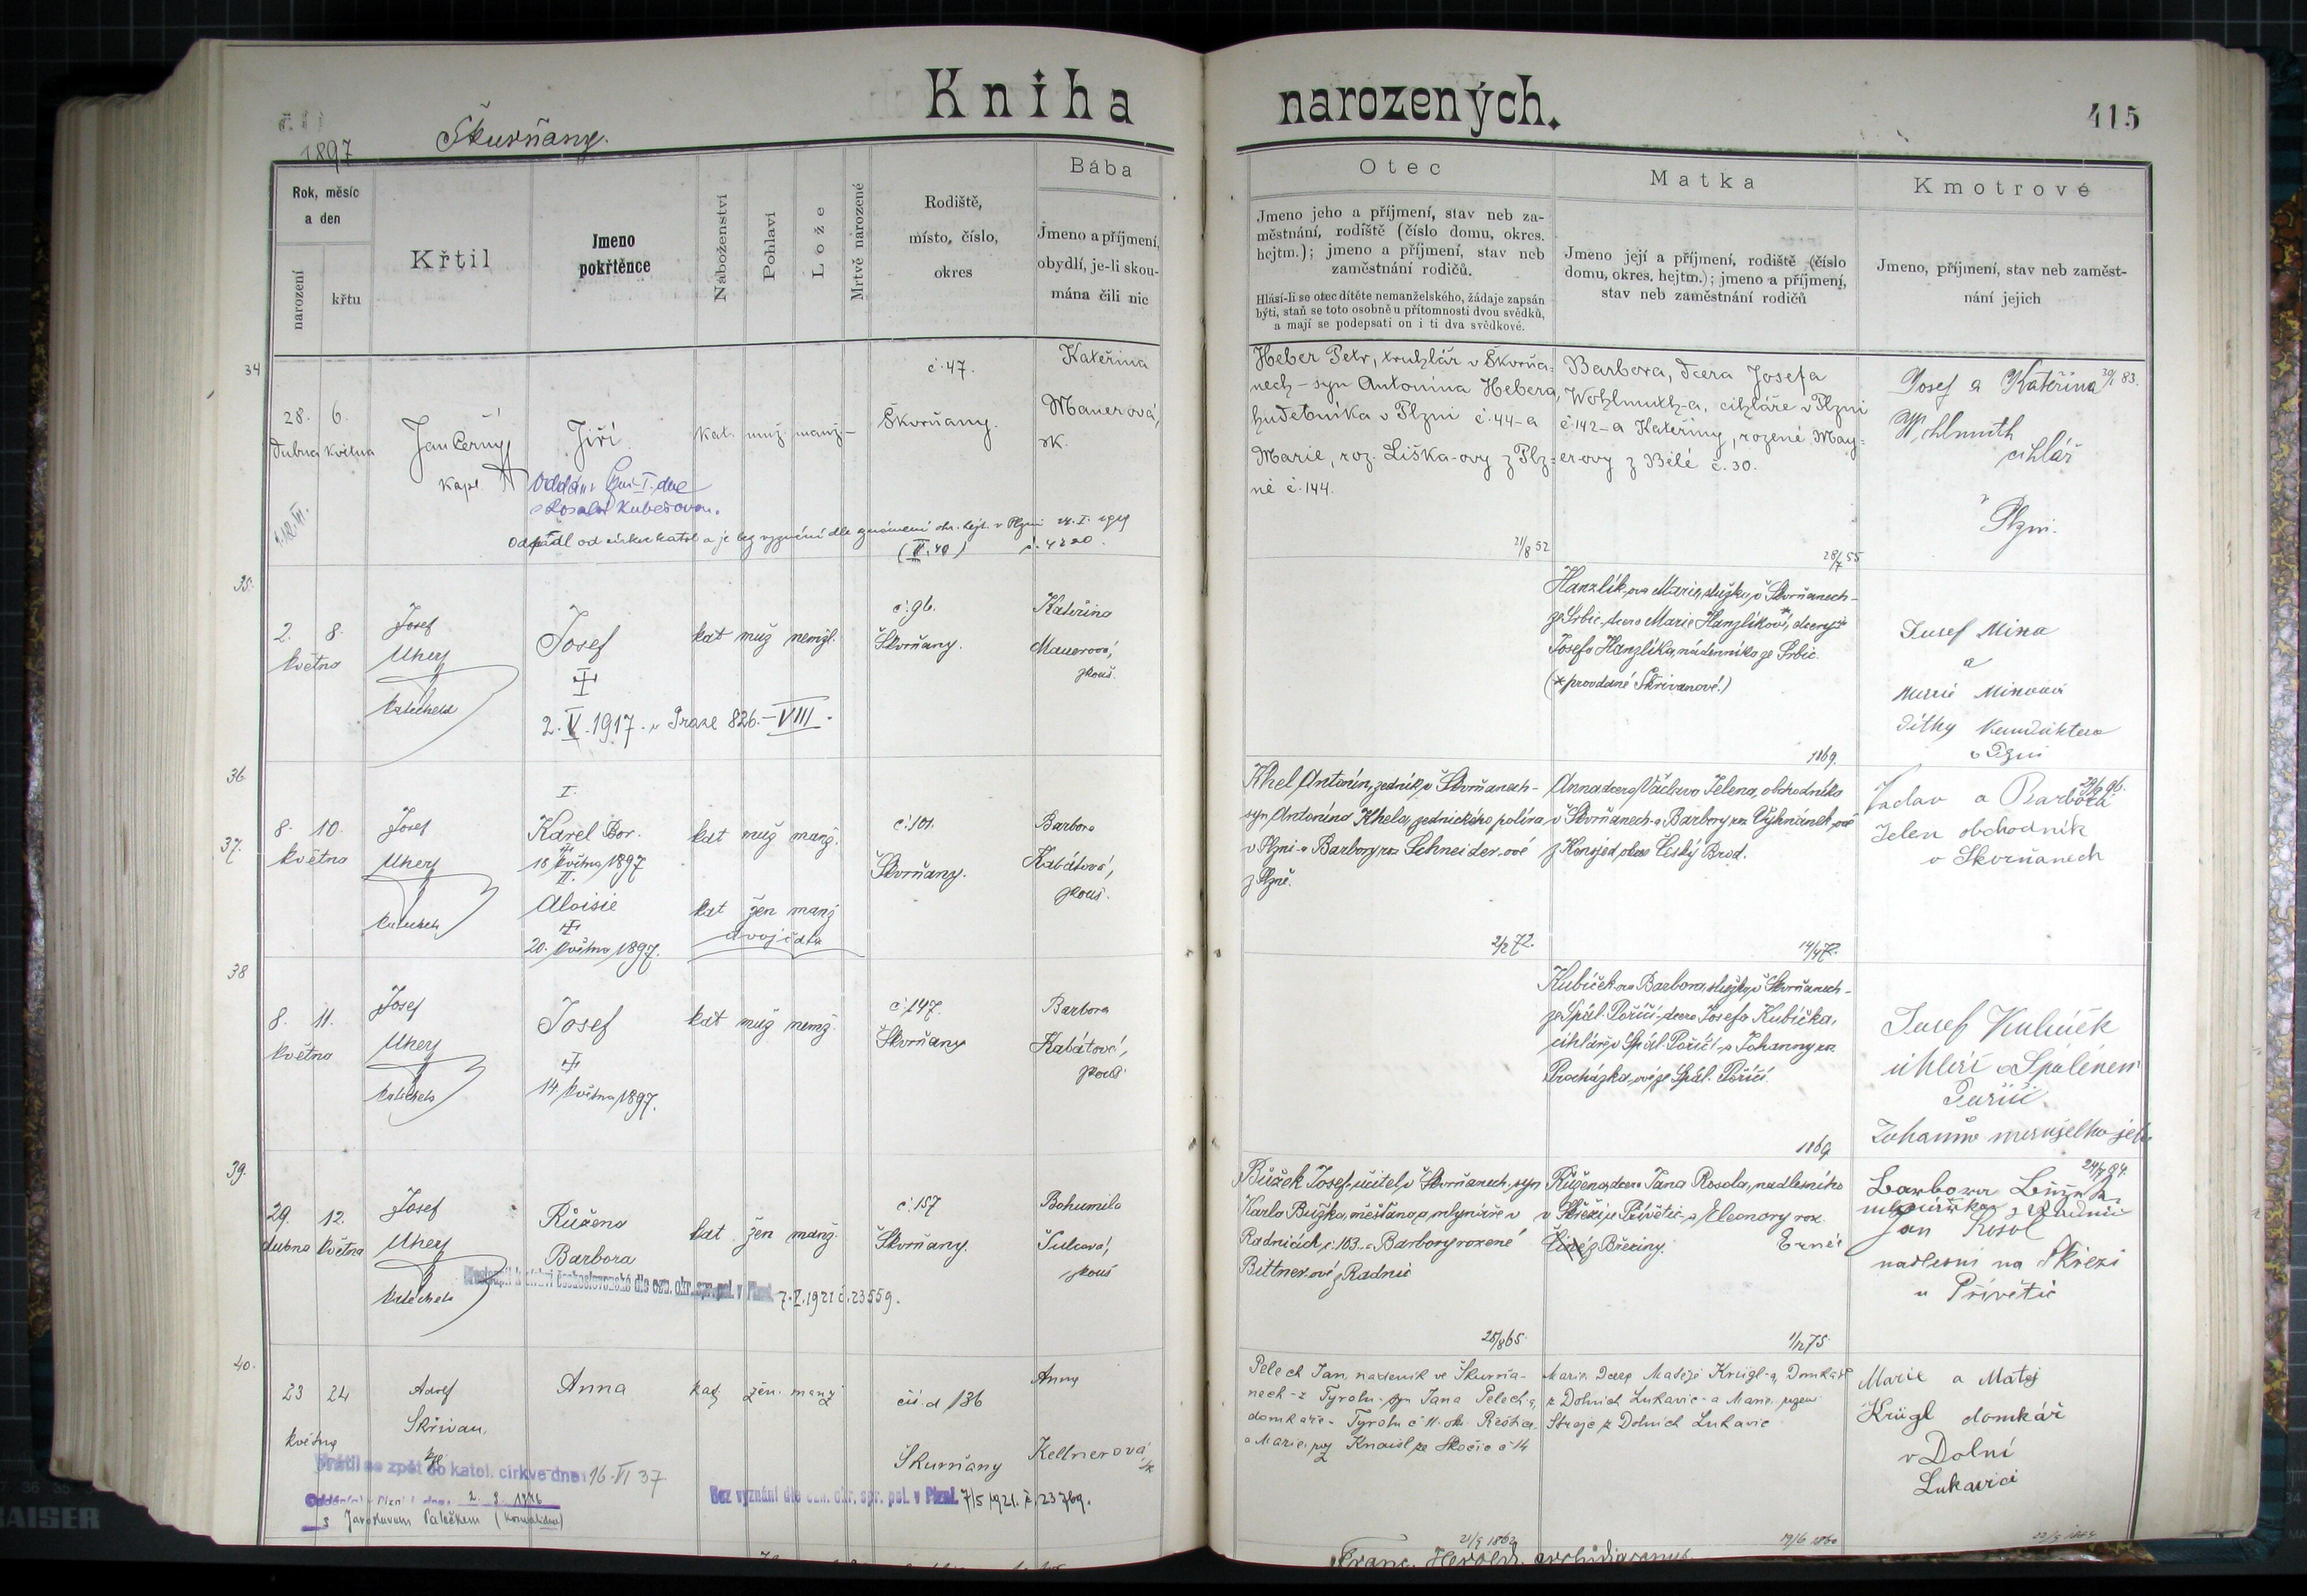 Kniha narozených.
415
1897
Škurňany.
Rok, měsíc
a den
narození
křtu
Křtil
Jmeno
pokřtěnce
Náboženství
Pohlaví
Lože
Mrtvě narozené
Rodiště,
místo, číslo,
okres
Bába
Jmeno a příjmení,
obydlí, je-li skou-
mána čili nic
Otec
Jmeno jeho a příjmení, stav neb za-
městnání, rodiště (číslo domu, okres.
hejtm.); jmeno a příjmení, stav neb
zaměstnání rodičů.
Hlásí-li se otec dítěte nemanželského, žádaje zapsán
býti, staň se toto osobně u přítomnosti dvou svědků,
a mají se podepsati on i ti dva svědkové.
Matka
Jmeno její a příjmení, rodiště (číslo
domu, okres. hejtm.); jmeno a příjmení,
stav neb zaměstnání rodičů
Kmotrové
Jmeno, příjmení, stav neb zaměst-
nání jejich
34
28. 6.
dubna května
Jan Černý
kapl.
Jiří
kat. muž. manž.
č. 47.
Škvrňany.
Kateřina
Mauerová,
zk.
Oddán
Kubešovou.
Odpadl od církve katol. a je bez vyznání dle oznámení okr. hejt. v Plzni 24. I. 1919
č. 4220.
Heber Petr, truhlář v Škvrňa-
nech - syn Antonína Hebera,
hudebníka v Plzni č. 44 - a
Marie, roz. Liška-ovy z Plz-
ně č. 144.
21/8 52
Barbora, dcera Josefa
Wohlmuth-a, cihláře v Plzni
č 142 - a Kateřiny, rozené May-
er-ovy z Bělé č. 30.
28/7 55
Josef a Kateřina
Wohlmuth
cihlář
v Plzni.
83.
35.
2. 8.
května
Josef
Uhery
katecheta
Josef
2. V. 1917. v Praze 826. - VIII.
kat muž nemžl.
č. 96.
Škvrňany.
Kateřina
Mauerová,
zkouš.
Hanzlík-ova Marie, služka v Škvrňanech -
ze Srbic, dcera Marie Hanzlíkové*, dcery
Josefa Hanzlíka, nádeníka ze Srbic.
(* provdané Skřivanové.)
1869.
Josef Mina
a
Marie Minová
dítky
v Plzni
36.
37.
8. 10.
května
Josef
Uhery
katecheta
I.
Karel Bor.
18. května 1897
II.
Aloisie
20. května 1897.
kat muž manž.
kat žen manž
dvojčata
č. 101.
Škvrňany.
Barbora
Kabátová,
zkouš.
Khel Antonín, zedník v Škvrňanech -
syn Antonína Khela, zednického políra
v Plzni - a Barbory roz. Schneider-ové
z Plzně.
2/2 72.
Anna, dcera Václava Jelena, obchodníka
v Škvrňanech - a Barbory roz. Výhnánek-ové
z Konojed, okres Český Brod.
14/4 72.
Václav a Barbora
Jelen obchodník
v Škvrňanech
96.
38
8. 11.
května
Josef
Uhery
katecheta
Josef
14. května 1897.
kat muž nemž.
č. 147.
Škvrňany
Barbora
Kabátová,
zkouš.
Kubíček-ova Barbora, služka v Škvrňanech -
ze Spál. Poříčí - dcera Josefa Kubíčka,
cihláře v Spál. Poříčí - a Johanny roz.
Procházka-ové ze Spál. Poříčí.
1869
Josef Kubíček
cihlář v Spáleném
Poříčí.
Johanna manželka jeho
39.
29. 12.
dubna května
Josef
Uhery
katecheta
Růžena
Barbora
Přestoupil k církvi československé dle ozn. okr. spr. pol. v Plzni 7. I. 1921 č. 23559.
kat žen manž.
č. 157
Škvrňany.
Bohumila
Šulcová,
zkouš
Bůžek Josef, učitel v Škvrňanech, syn
Karla Bůžka, měšťana a mlynáře v
Radnicích, č. 103. - a Barbory rozené
Bittner-ové z Radnic
25/8 65.
Růžena, dcera Jana Rosola, nadlesního
v Skřeži u Přívětic - a Eleonory roz.
Erné z Březiny.
1/12 75
Barbora Bůžk
z Radnic
Jan Rosol
nadlesní na Skřeži
u Přívětic
24/7 84.
40.
23 24
května
Adolf
Skřivan,
kpl
Anna
kat. žen. manž
čís. d 136
Škurňany
Anna
Kellnerová,
zk
Vrátil se zpět do katol. církve dne 16. VI 37
Oddán(a) v Plzni dne 2. 9. 1946
s Jaroslavem Palečkem (konvalidace)
Bez vyznání dle ozn. okr. spr. pol. v Plzni. 7/5 1921. č. 23769.
Pelech Jan, nádeník ve Škurňa-
nech - z Tyrolu - syn Jana Pelech-a,
domkáře - Tyrolu č 11. ok.
a Marie, roz Knaisl ze Skočic č 14
21/5 1862
Marie, dcera Matěje Krügl-a, Domkáře
z Dolních Lukavic - a Marie, rozen
z Dolních Lukavic
19/6 1860
Marie a Matěj
Krügl domkář
v Dolní
Lukavici
Franc. Herold, archidiakonus.